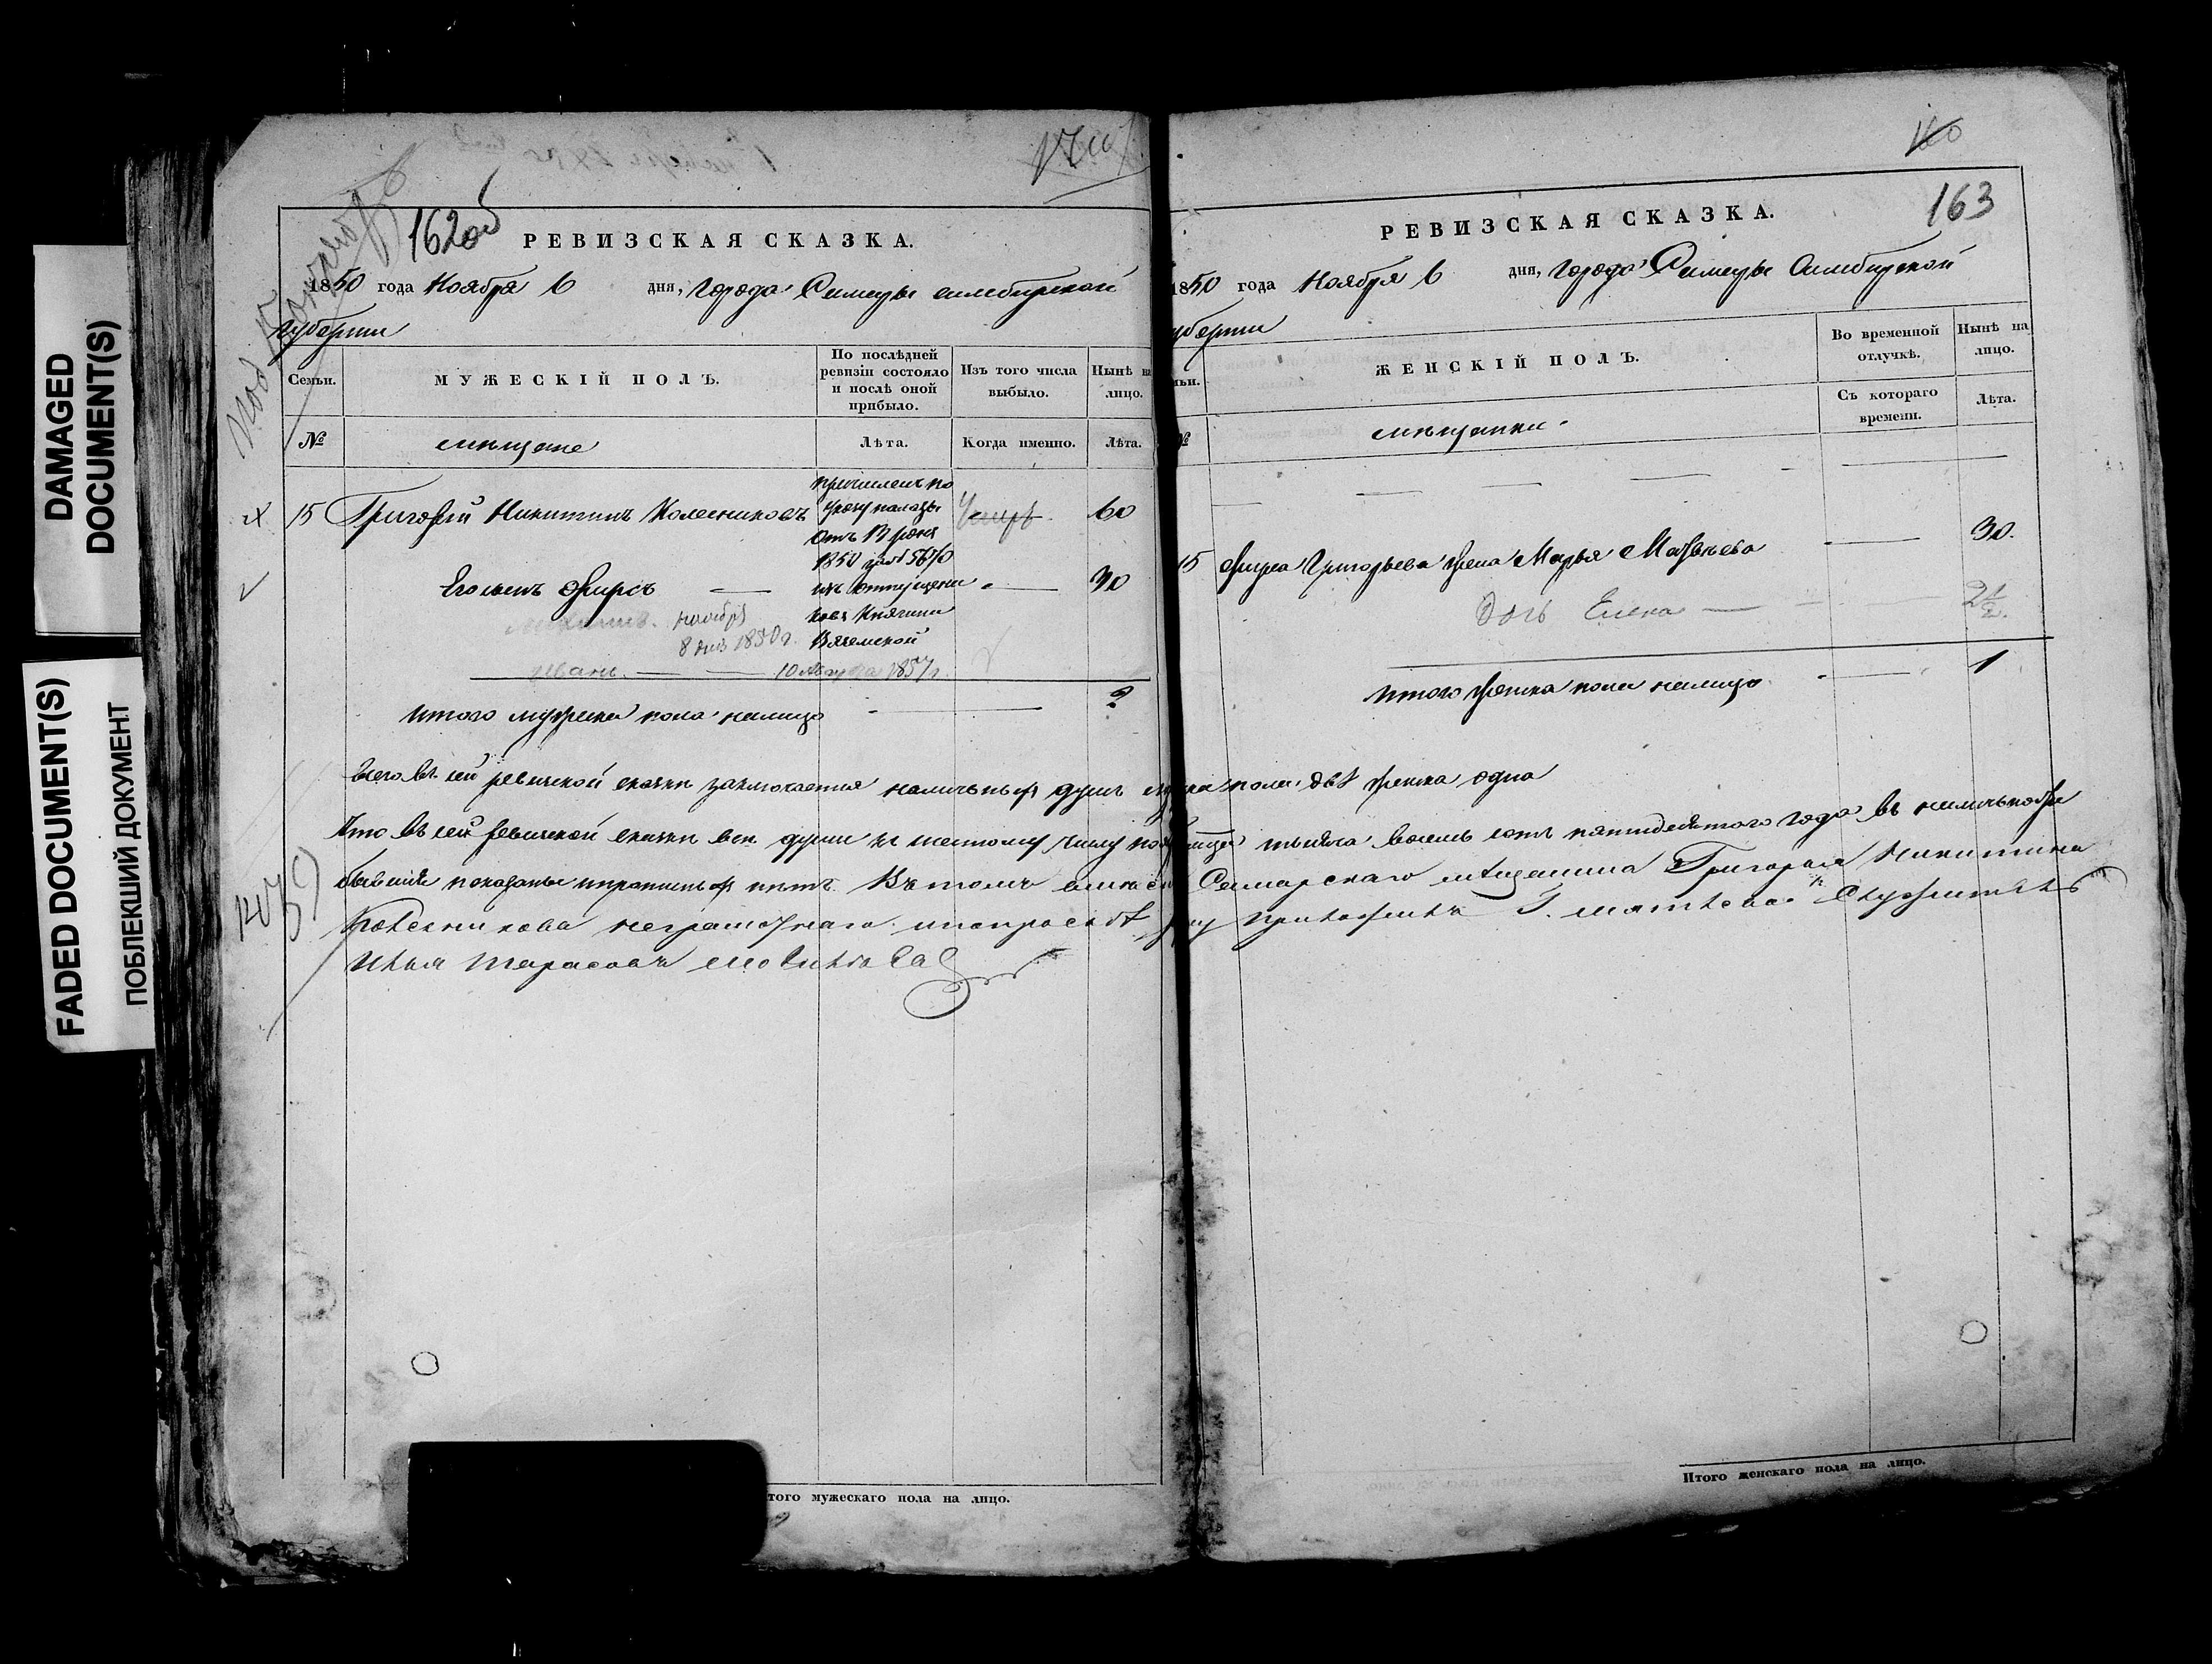 DAMAGED
DOCUMENT(S)
FADED DOCUMENT(S)
ПОБЛЕКШИЙ ДОКУМЕНТ
162об
РЕВИЗСКАЯ СКАЗКА.
1850 года Ноября 6 дня, Города Самары Симбирской
Губернии
Семьи.
МУЖЕСКІЙ ПОЛЪ.
По послѣдней ревизіи состояло и послѣ оной прибыло.
Изъ того числа выбыло.
Нынѣ на лицо.
№
мещане
Лѣта.
Когда именно.
Лѣта.
15 Григорій Никитинъ Колесниковъ
причисленъ по
указу палаты
отъ
1850 за № 5670
изъ отпущени
ковъ Княгини
Вяземской
Умеръ
60
Его сынъ Фирсъ — — 30
ноября
8 дня 1850 г.
Иванъ — — 10 1857 г.
Итого мужеска пола налицо — 2
Всего въ сей ревизской сказки заключается наличныхъ душъ мужска пола двѣ женска одна
Что въ сей ревизской сказки все души къ шестому числу ноября тысяча восемь сотъ пятидесятого года въ наличности
бывшія показаны и прописныхъ нѣтъ. Въ томъ Самарскаго мѣщанина Григорья Никитина
Колесникова неграмотнаго
Илья Тарасовъ
160
163
РЕВИЗСКАЯ СКАЗКА.
1850 года Ноября 6 дня, Города Самары Симбирской
губернии
ЖЕНСКІЙ ПОЛЪ.
Во временной отлучкѣ.
Нынѣ на лицо.
№
мещанки
Съ котораго времени.
Лѣта.
15 Фирса Григорьева жена Марья Матвеева — 30.
дочь Елена — — 2½
Итого женска пола налицо — 1
того мужескаго пола на лицо.
Итого женскаго пола на лицо.